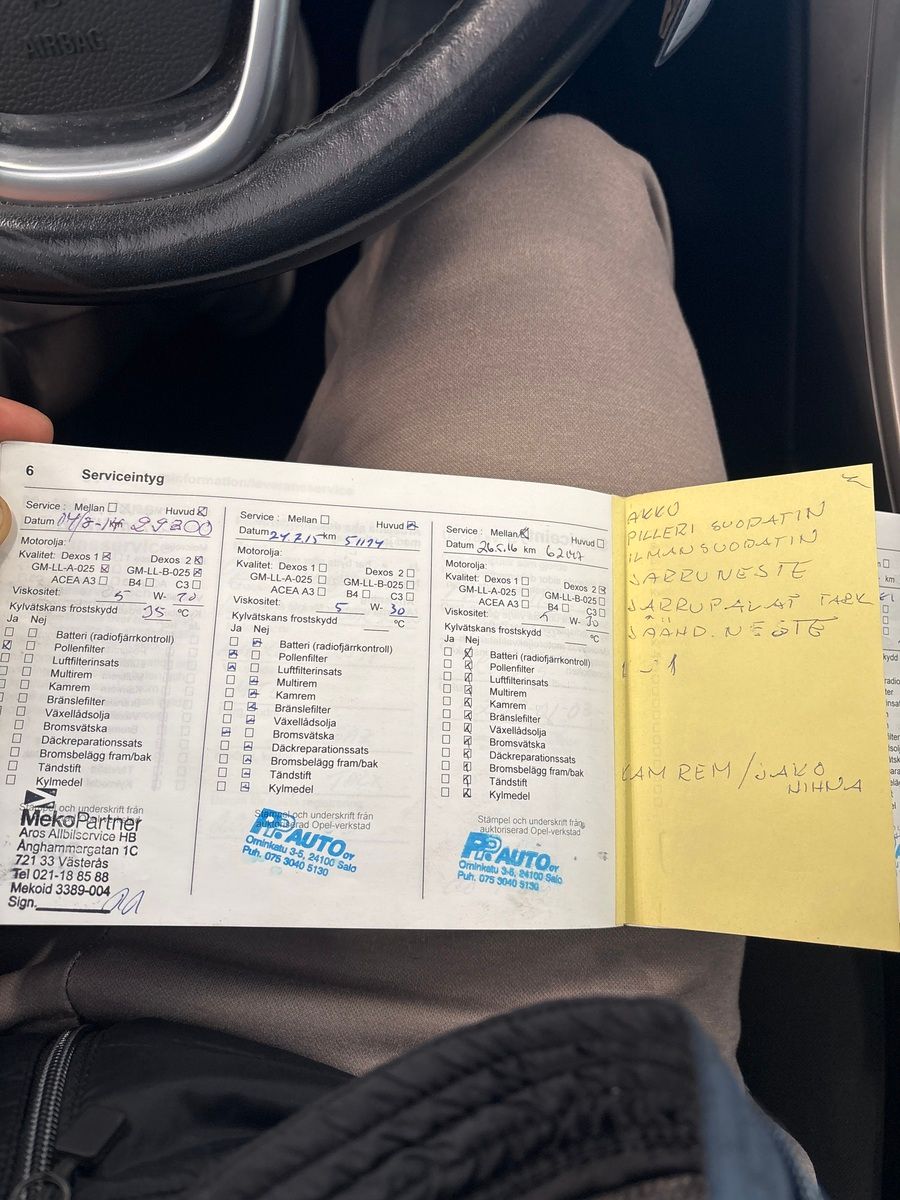 AIRBAG
6 Serviceintyg
Service: Mellan ☐ Huvud ☒
Datum km 29800
Motorolja:
Kvalitet: Dexos 1 ☒ Dexos 2 ☒
GM-LL-A-025 ☒ GM-LL-B-025 ☒
ACEA A3 ☐ B4 ☐ C3 ☐
Viskositet: 5 W-
Kylvätskans frostskydd 35 °C
Ja Nej
Batteri (radiofjärrkontroll)
Pollenfilter
Luftfilterinsats
Multirem
Kamrem
Bränslefilter
Växellådsolja
Bromsvätska
Däckreparationssats
Bromsbelägg fram/bak
Tändstift
Kylmedel
Stämpel och underskrift från
MekoPartner
Aros Allbilservice HB
Anghammargatan 1C
721 33 Västerås
Tel 021-18 85 88
Mekoid 3389-004
Sign.
Service: Mellan ☐ Huvud ☒
Datum 24.7.15 km 51174
Motorolja:
Kvalitet: Dexos 1 ☐ Dexos 2 ☐
GM-LL-A-025 ☐ GM-LL-B-025 ☐
ACEA A3 ☐ B4 ☐ C3 ☐
Viskositet: 5 W- 30
Kylvätskans frostskydd °C
Ja Nej
Batteri (radiofjärrkontroll)
Pollenfilter
Luftfilterinsats
Multirem
Kamrem
Bränslefilter
Växellådsolja
Bromsvätska
Däckreparationssats
Bromsbelägg fram/bak
Tändstift
Kylmedel
Stämpel och underskrift från
auktoriserad Opel-verkstad
PP AUTO OY
Örninkatu 3-5, 24100 Salo
Puh. 075 3040 5130
Service: Mellan ☒ Huvud ☐
Datum 26.5.16 km 62147
Motorolja:
Kvalitet: Dexos 1 ☐ Dexos 2 ☒
GM-LL-A-025 ☐ GM-LL-B-025 ☐
ACEA A3 ☐ B4 ☐ C3 ☐
Viskositet: 5 W- 30
Kylvätskans frostskydd °C
Ja Nej
Batteri (radiofjärrkontroll)
Pollenfilter
Luftfilterinsats
Multirem
Kamrem
Bränslefilter
Växellådsolja
Bromsvätska
Däckreparationssats
Bromsbelägg fram/bak
Tändstift
Kylmedel
Stämpel och underskrift från
auktoriserad Opel-verkstad
PP AUTO OY
Örninkatu 3-5, 24100 Salo
Puh. 075 3040 5130
AKKU
PILLERI SUODATIN
ILMANSUODATIN
JARRUNESTE
JARRUPALAT TARK
JÄÄHD. NESTE
KAMREM / JAKO
HIHNA